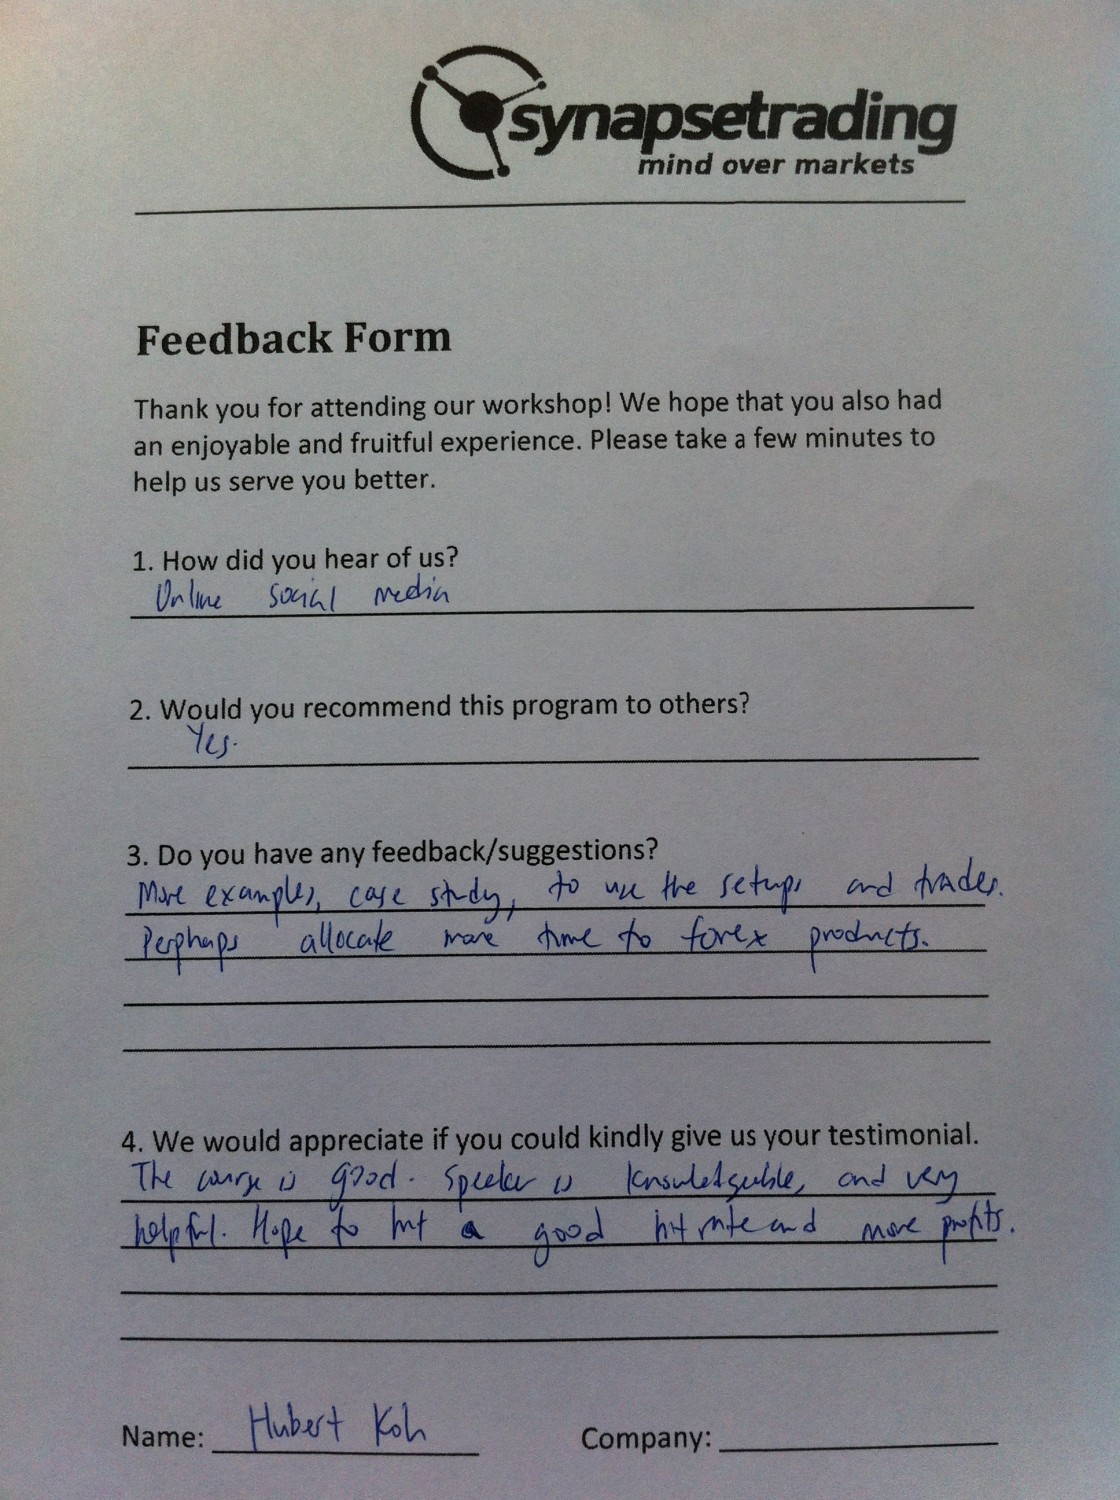 synapsetrading
mind over markets
Feedback Form
Thank you for attending our workshop! We hope that you also had
an enjoyable and fruitful experience. Please take a few minutes to
help us serve you better.
1. How did you hear of us?
Online social media
2. Would you recommend this program to others?
Yes.
3. Do you have any feedback/suggestions?
More examples, case study, to use the setups and trades.
Perphaps allocate more time to forex products.
4. We would appreciate if you could kindly give us your testimonial.
The course is good. Speaker is knowledgeable, and very
helpful. Hope to hit a good hit rate and more profits.
Name: Hubert Koh
Company: